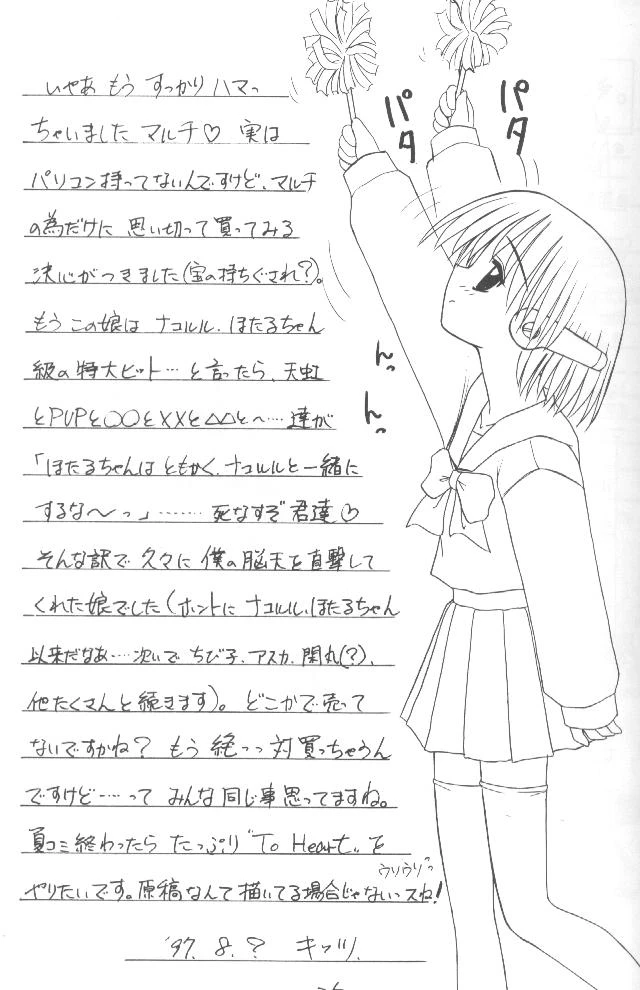 いやあ もう すっかり ハマっ
ちゃいました マルチ♡ 実は
パソコン持ってないんですけど、マルチ
の為だけに 思い切って買ってみる
決心がつきました(宝の持ちぐされ?)。
もう この娘は ナコルル、ほたるちゃん
級の 特大ヒット…と言ったら、天虹
とPVPと〇〇と××と△△と〜……達が
「ほたるちゃんは ともかく、ナコルルと一緒に
するな〜っ」……… 死なすぞ 君達♡
そんな訳で 久々に 僕の脳天を直撃して
くれた娘でした(ホントに ナコルル、ほたるちゃん
以来だなあ……次いで ちび子、アスカ、関丸(?)、
他たくさんと続きます)。どこかで売って
ないですかね? もう 絶っっ対買っちゃうん
ですけど……って みんな同じ事思ってますね。
夏コミ終わったら たっぷり“To Heart„を
やりたいです。原稿なんて描いてる場合じゃないっスね!
ウリウリ〜っ
'97. 8. ? キッツ.
パタ
パタ
んっ
んっ